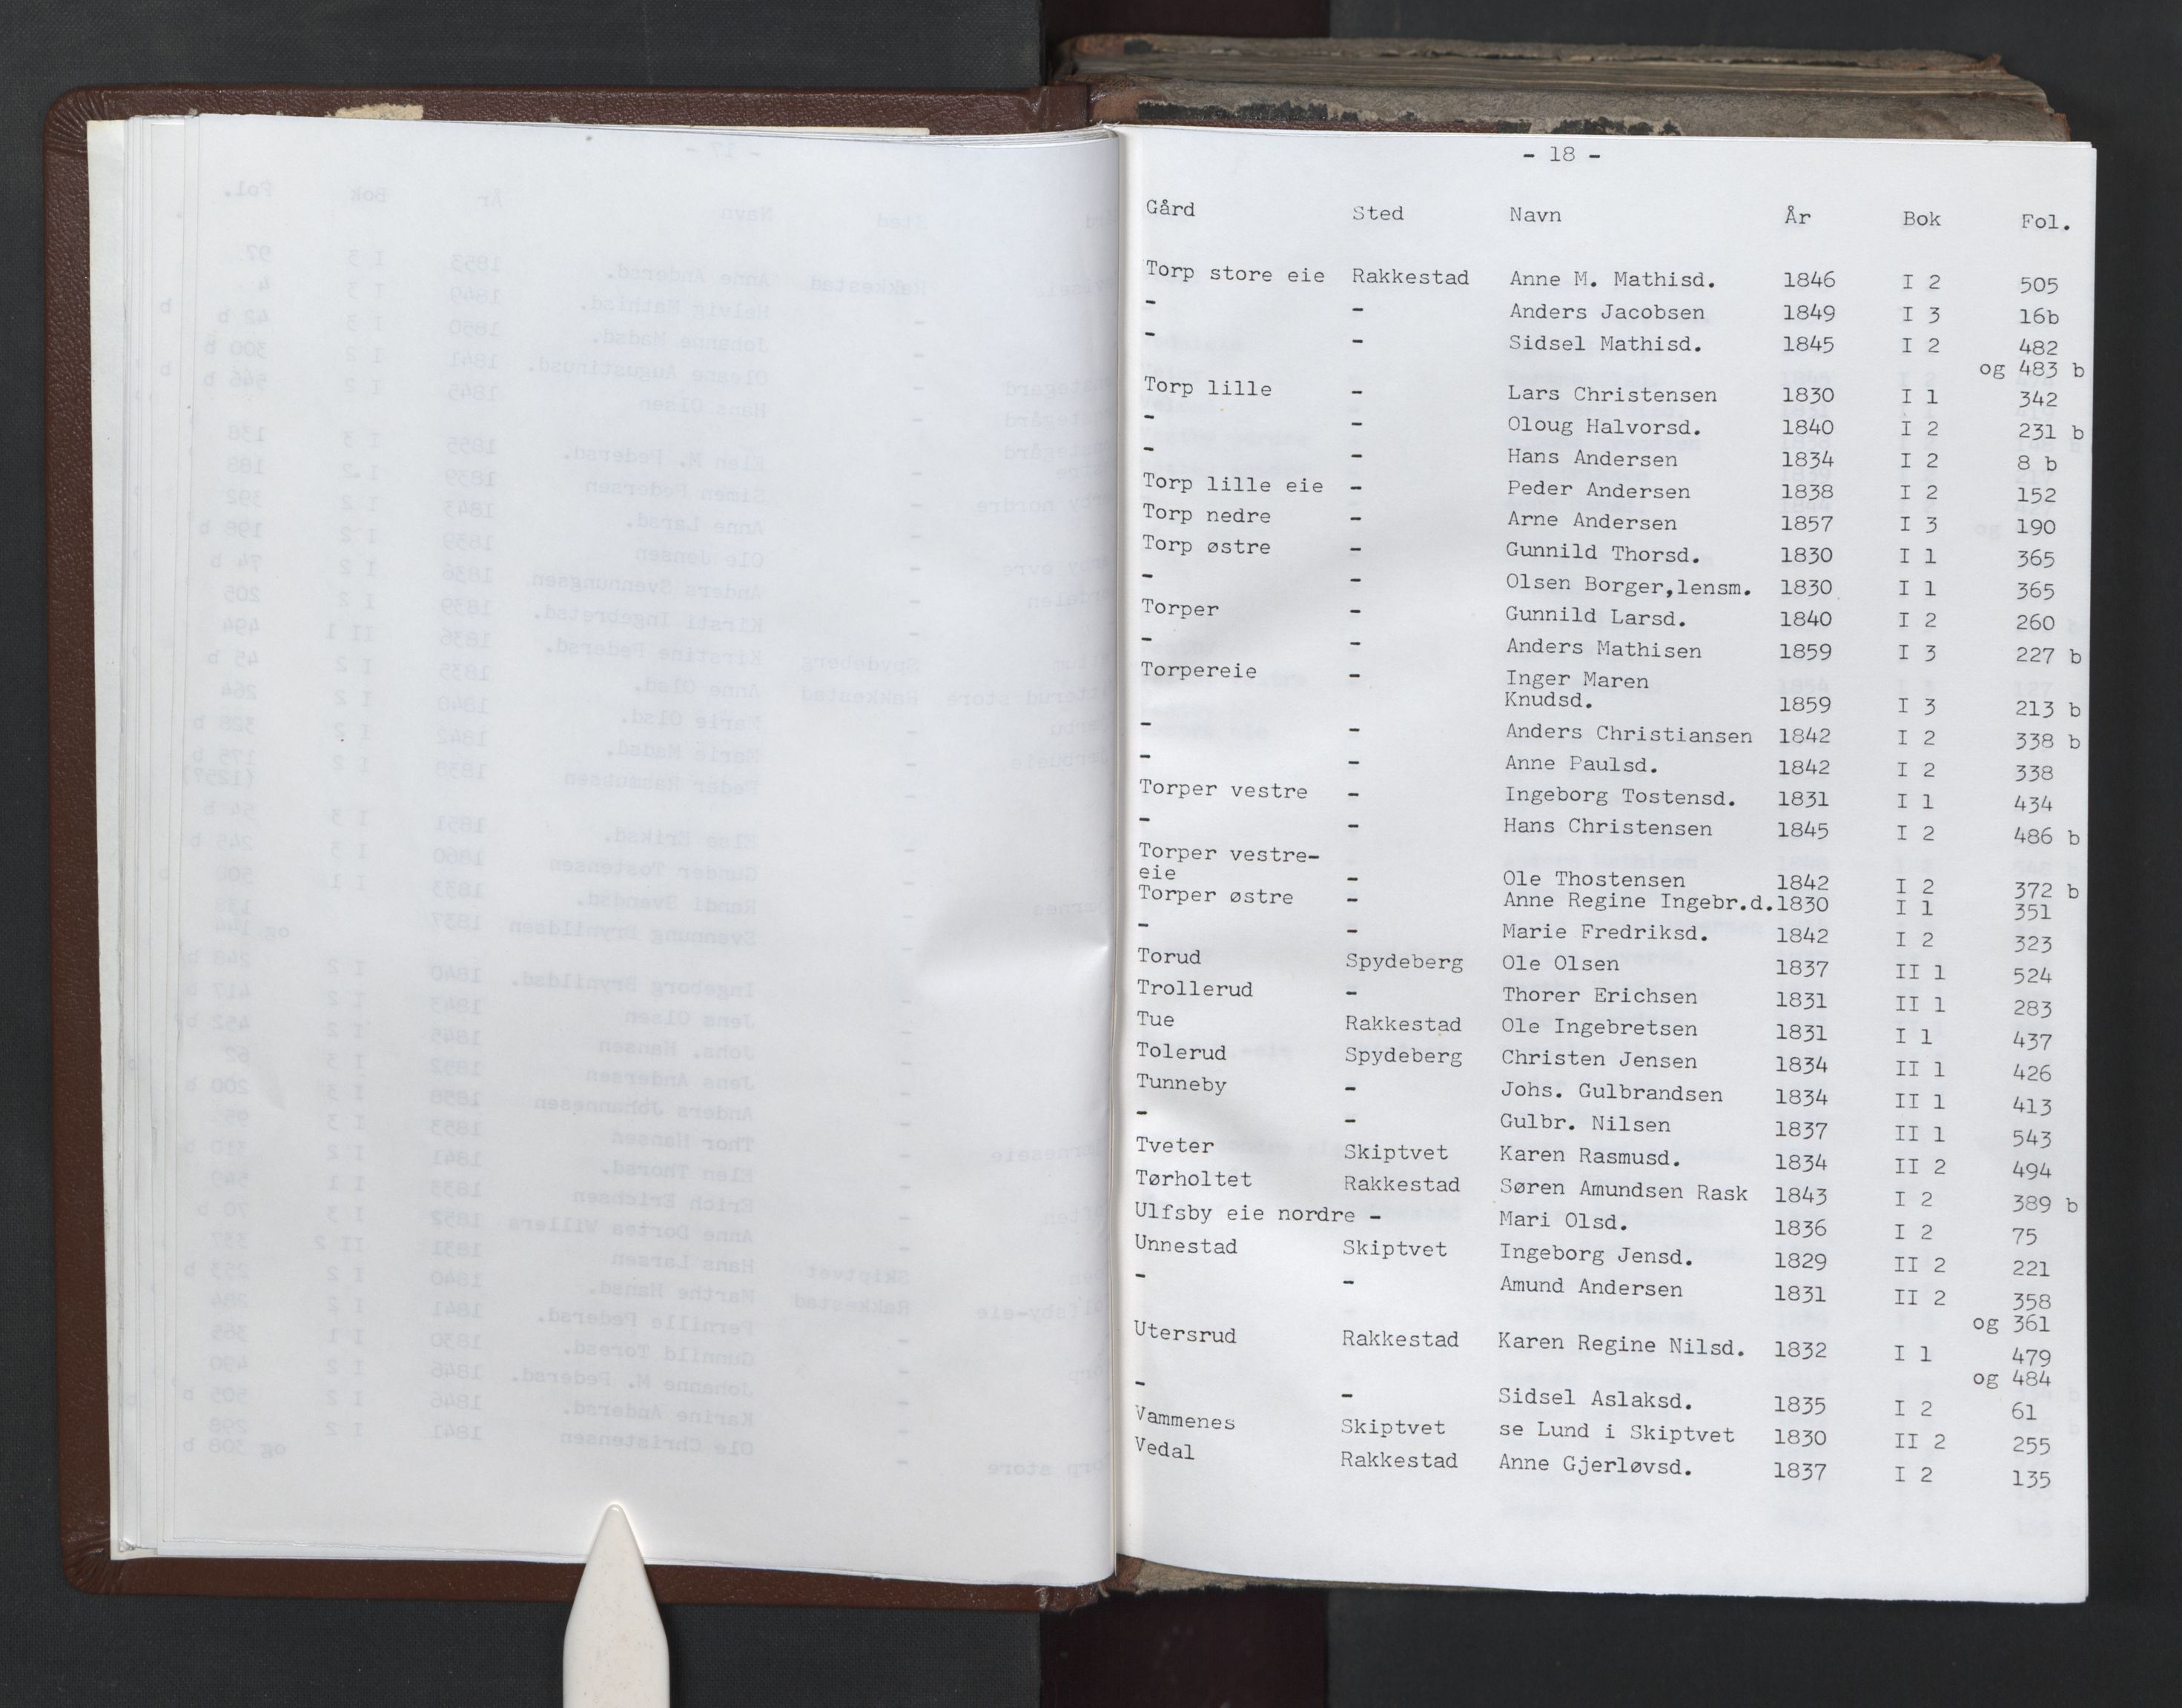 - 18 -
Gård Sted Navn År Bok Fol.
Torp store eie Rakkestad Anne M. Mathisd. 1846 I 2 505
- - Anders Jacobsen 1849 I 3 16b
- - Sidsel Mathisd. 1845 I 2 482
og 483 b
Torp lille - Lars Christensen 1830 I 1 342
- - Oloug Halvorsd. 1840 I 2 231 b
- - Hans Andersen 1834 I 2 8 b
Torp lille eie - Peder Andersen 1838 I 2 152
Torp nedre - Arne Andersen 1857 I 3 190
Torp østre - Gunnild Thorsd. 1830 I 1 365
- - Olsen Borger,lensm. 1830 I 1 365
Torper - Gunnild Larsd. 1840 I 2 260
- - Anders Mathisen 1859 I 3 227 b
Torpereie - Inger Maren
Knudsd. 1859 I 3 213 b
- - Anders Christiansen 1842 I 2 338 b
- - Anne Paulsd. 1842 I 2 338
Torper vestre - Ingeborg Tostensd. 1831 I 1 434
- - Hans Christensen 1845 I 2 486 b
Torper vestre-
eie - Ole Thostensen 1842 I 2 372 b
Torper østre - Anne Regine Ingebr.d.1830 I 1 351
- - Marie Fredriksd. 1842 I 2 323
Torud Spydeberg Ole Olsen 1837 II 1 524
Trollerud - Thorer Erichsen 1831 II 1 283
Tue Rakkestad Ole Ingebretsen 1831 I 1 437
Tolerud Spydeberg Christen Jensen 1834 II 1 426
Tunneby - Johs. Gulbrandsen 1834 II 1 413
- - Gulbr. Nilsen 1837 II 1 543
Tveter Skiptvet Karen Rasmusd. 1834 II 2 494
Tørholtet Rakkestad Søren Amundsen Rask 1843 I 2 389 b
Ulfsby eie nordre - Mari Olsd. 1836 I 2 75
Unnestad Skiptvet Ingeborg Jensd. 1829 II 2 221
- - Amund Andersen 1831 II 2 358
og 361
Utersrud Rakkestad Karen Regine Nilsd. 1832 I 1 479
og 484
- - Sidsel Aslaksd. 1835 I 2 61
Vammenes Skiptvet se Lund i Skiptvet 1830 II 2 255
Vedal Rakkestad Anne Gjerløvsd. 1837 I 2 135